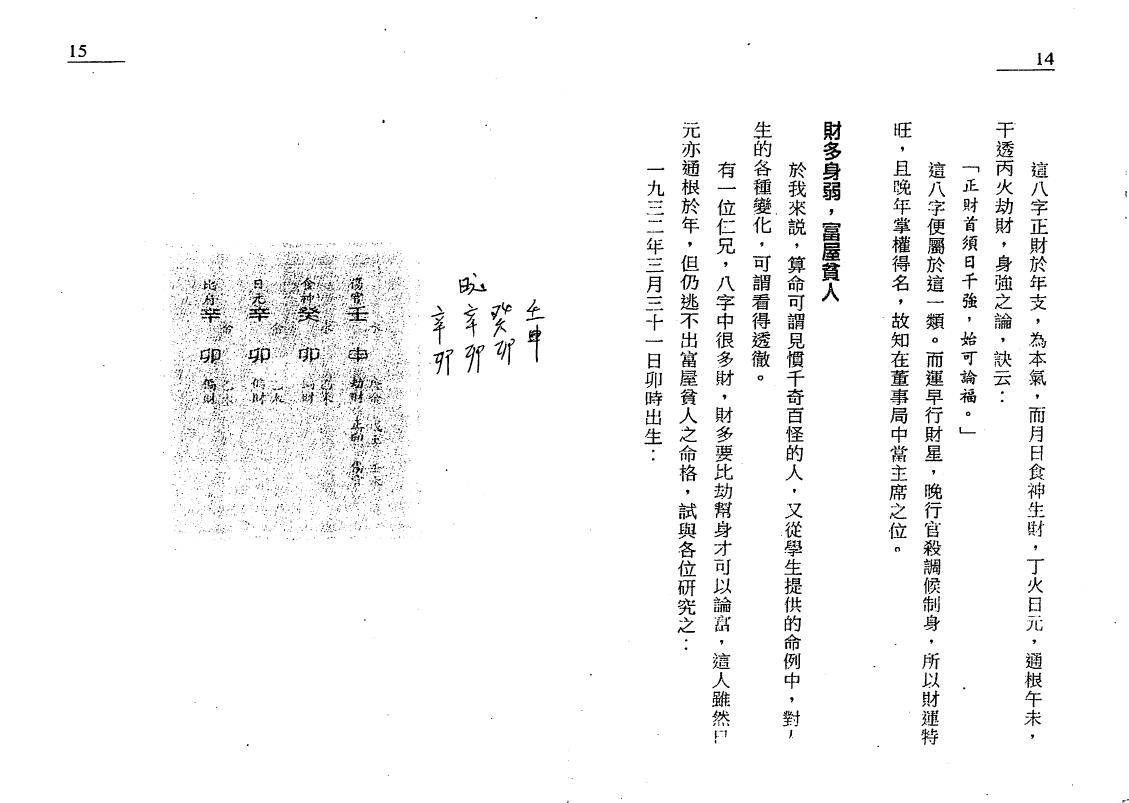 14
這八字正財於年支，為本氣，而月日食神生財，丁火日元，通根午未，
干透丙火劫財，身強之論，訣云：
「正財首須日干強，始可論福。」
這八字便屬於這一類。而運早行財星，晚行官殺調候制身，所以財運特
旺，且晚年掌權得名，故知在董事局中當主席之位。
財多身弱，富屋貧人
於我來説，算命可謂見慣千奇百怪的人，又從學生提供的命例中，對人
生的各種變化，可謂看得透徹。
有一位仁兄，八字中很多財，財多要比劫幫身才可以論富，這人雖然日
元亦通根於年，但仍逃不出富屋貧人之命格，試與各位研究之：
一九三二年三月三十一日卯時出生：
15
壬申
癸卯
辛卯
辛卯
傷官 壬 申 劫財 正印 傷官
食神 癸 卯 偏財
日元 辛 卯 偏財
比肩 辛 卯 偏財